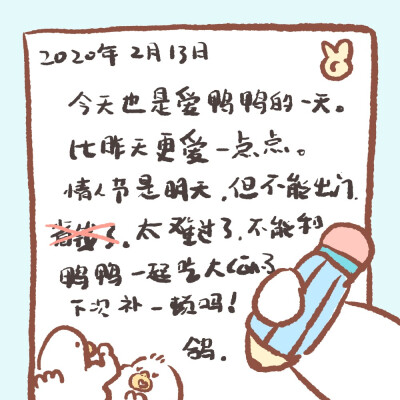 2020年2月13日
今天也是爱鸭鸭的一天。
比昨天更爱一点点。
情人节是明天，但不能出门，
省钱了，太难过了，不能和
鸭鸭一起吃大Can了
下次补一顿吗！
鸽.